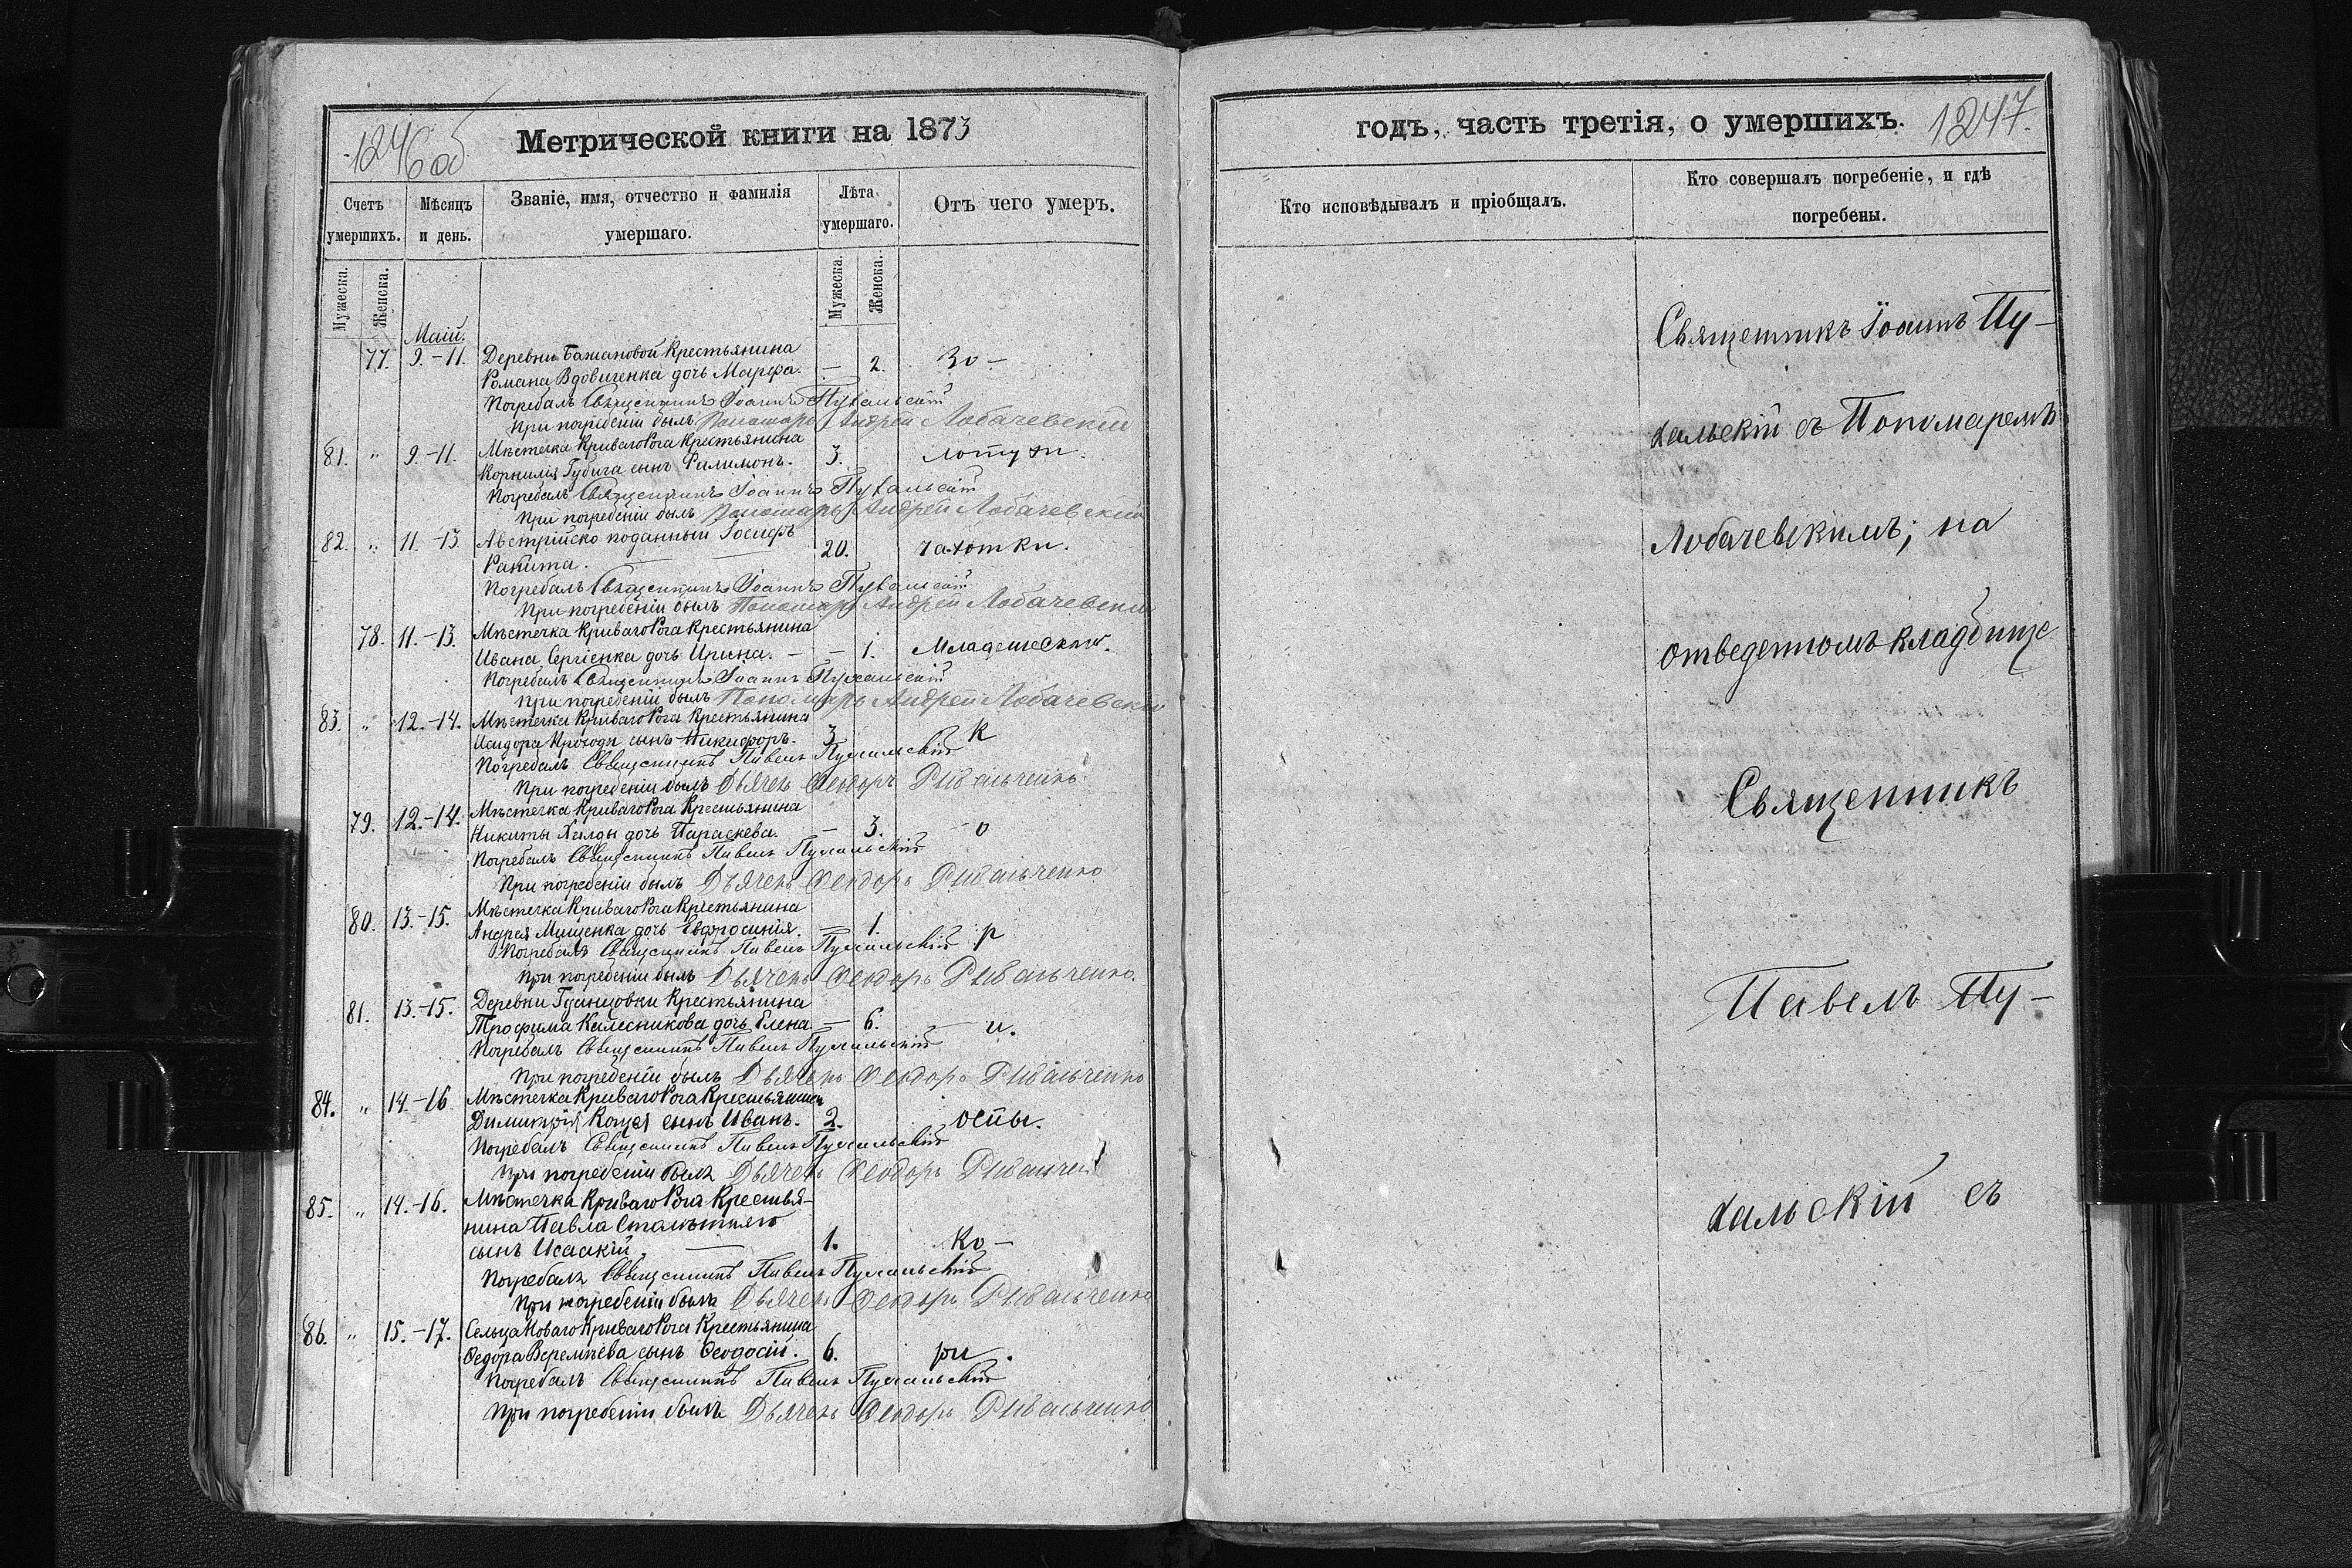 1246 об
Метрической книги на 1873
Счетъ умершихъ.
Мѣсяцъ и день.
Званіе, имя, отчество и фамилія умершаго.
Лѣта умершаго.
Отъ чего умеръ.
Мужеска.
Женска.
Мужеска.
Женска.
Маій.
77. 9.-11. Деревни Бажановой Крестьянина
Романа Вдовиченка дочь Марфа. — 2. Зо-
Погребалъ Священникъ Іоаннъ Пухальскій
При погребеніи былъ Пономарь Андрей Лобачевскій
81. " 9.-11. Мѣстечка Криваго Рога Крестьянина
Корнилія Губича сынъ Филимонъ. 3. лотухи.
Погребалъ Священникъ Іоаннъ Пухальскій
При погребеніи былъ Пономарь Андрей Лобачевскій
82. " 11.-13. Австрійско поданный Іосифъ
Ракита. 20. чахотки.
Погребалъ Священникъ Іоаннъ Пухальскій
При погребеніи былъ Пономарь Андрей Лобачевскій
78. 11.-13. Мѣстечка Криваго Рога Крестьянина
Ивана Сергіенка дочь Ирина. — — 1. Младенческой.
Погребалъ Священникъ Іоаннъ Пухальскій
При погребеніи былъ Пономарь Андрей Лобачевскій
83. " 12.-14. Мѣстечка Криваго Рога Крестьянина
Исидора Проходи сынъ Никифоръ. 3. К
Погребалъ Священникъ Павелъ Пухальскій
При погребеніи былъ Дьячекъ Ѳеодоръ Рывальченко
79. 12.-14. Мѣстечка Криваго Рога Крестьянина
Никиты дочь Параскева. — 3. о
Погребалъ Священникъ Павелъ Пухальскій
При погребеніи былъ Дьячекъ Ѳеодоръ Рывальченко
80. 13.-15. Мѣстечка Криваго Рога Крестьянина
Андрея Мищенка дочь Евфросинія. — 1. р
Погребалъ Священникъ Павелъ Пухальскій
При погребеніи былъ Дьячекъ Ѳеодоръ Рывальченко.
81. 13.-15. Деревни Гданцовки Крестьянина
Трофима Калесникова дочь Елена — 6. и.
Погребалъ Священникъ Павелъ Пухальскій
При погребеніи былъ Дьячекъ Ѳеодоръ Рывальченко
84. " 14.-16 Мѣстечка Криваго Рога Крестьянина
Димитрія Коцея сынъ Иванъ. 2. оспы.
Погребалъ Священникъ Павелъ Пухальскій
При погребеніи былъ Дьячекъ Ѳеодоръ
85. " 14.-16. Мѣстечка Криваго Рога Крестья-
нина Павла
сынъ Исаакій. — 1. Ко-
Погребалъ Священникъ Павелъ Пухальскій
При погребеніи былъ Дьячекъ Ѳеодоръ Рывальченко
86. " 15.-17. Сельца Новаго Криваго Рога Крестьянина
Ѳедора Веремѣева сынъ Ѳеодосій. 6. ри.
Погребалъ Священникъ Павелъ Пухальскій
При погребеніи былъ Дьячекъ Ѳеодоръ Рывальченко
годъ, часть третія, о умершихъ.
1247.
Кто исповѣдывалъ и пріобщалъ.
Кто совершалъ погребеніе, и гдѣ
погребены.
Священникъ Іоаннъ Пу-
хальскій съ Пономаремъ
Лобачевскимъ; на
отведенномъ кладбище
Священникъ
Павелъ Пу-
хальскій съ